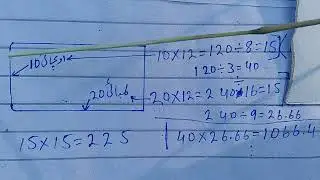 10×12=120÷8=15
120÷3=40
20×12=240÷16=15
240÷9=26.66
15×15=225
40×26.66=1066.4
10
20